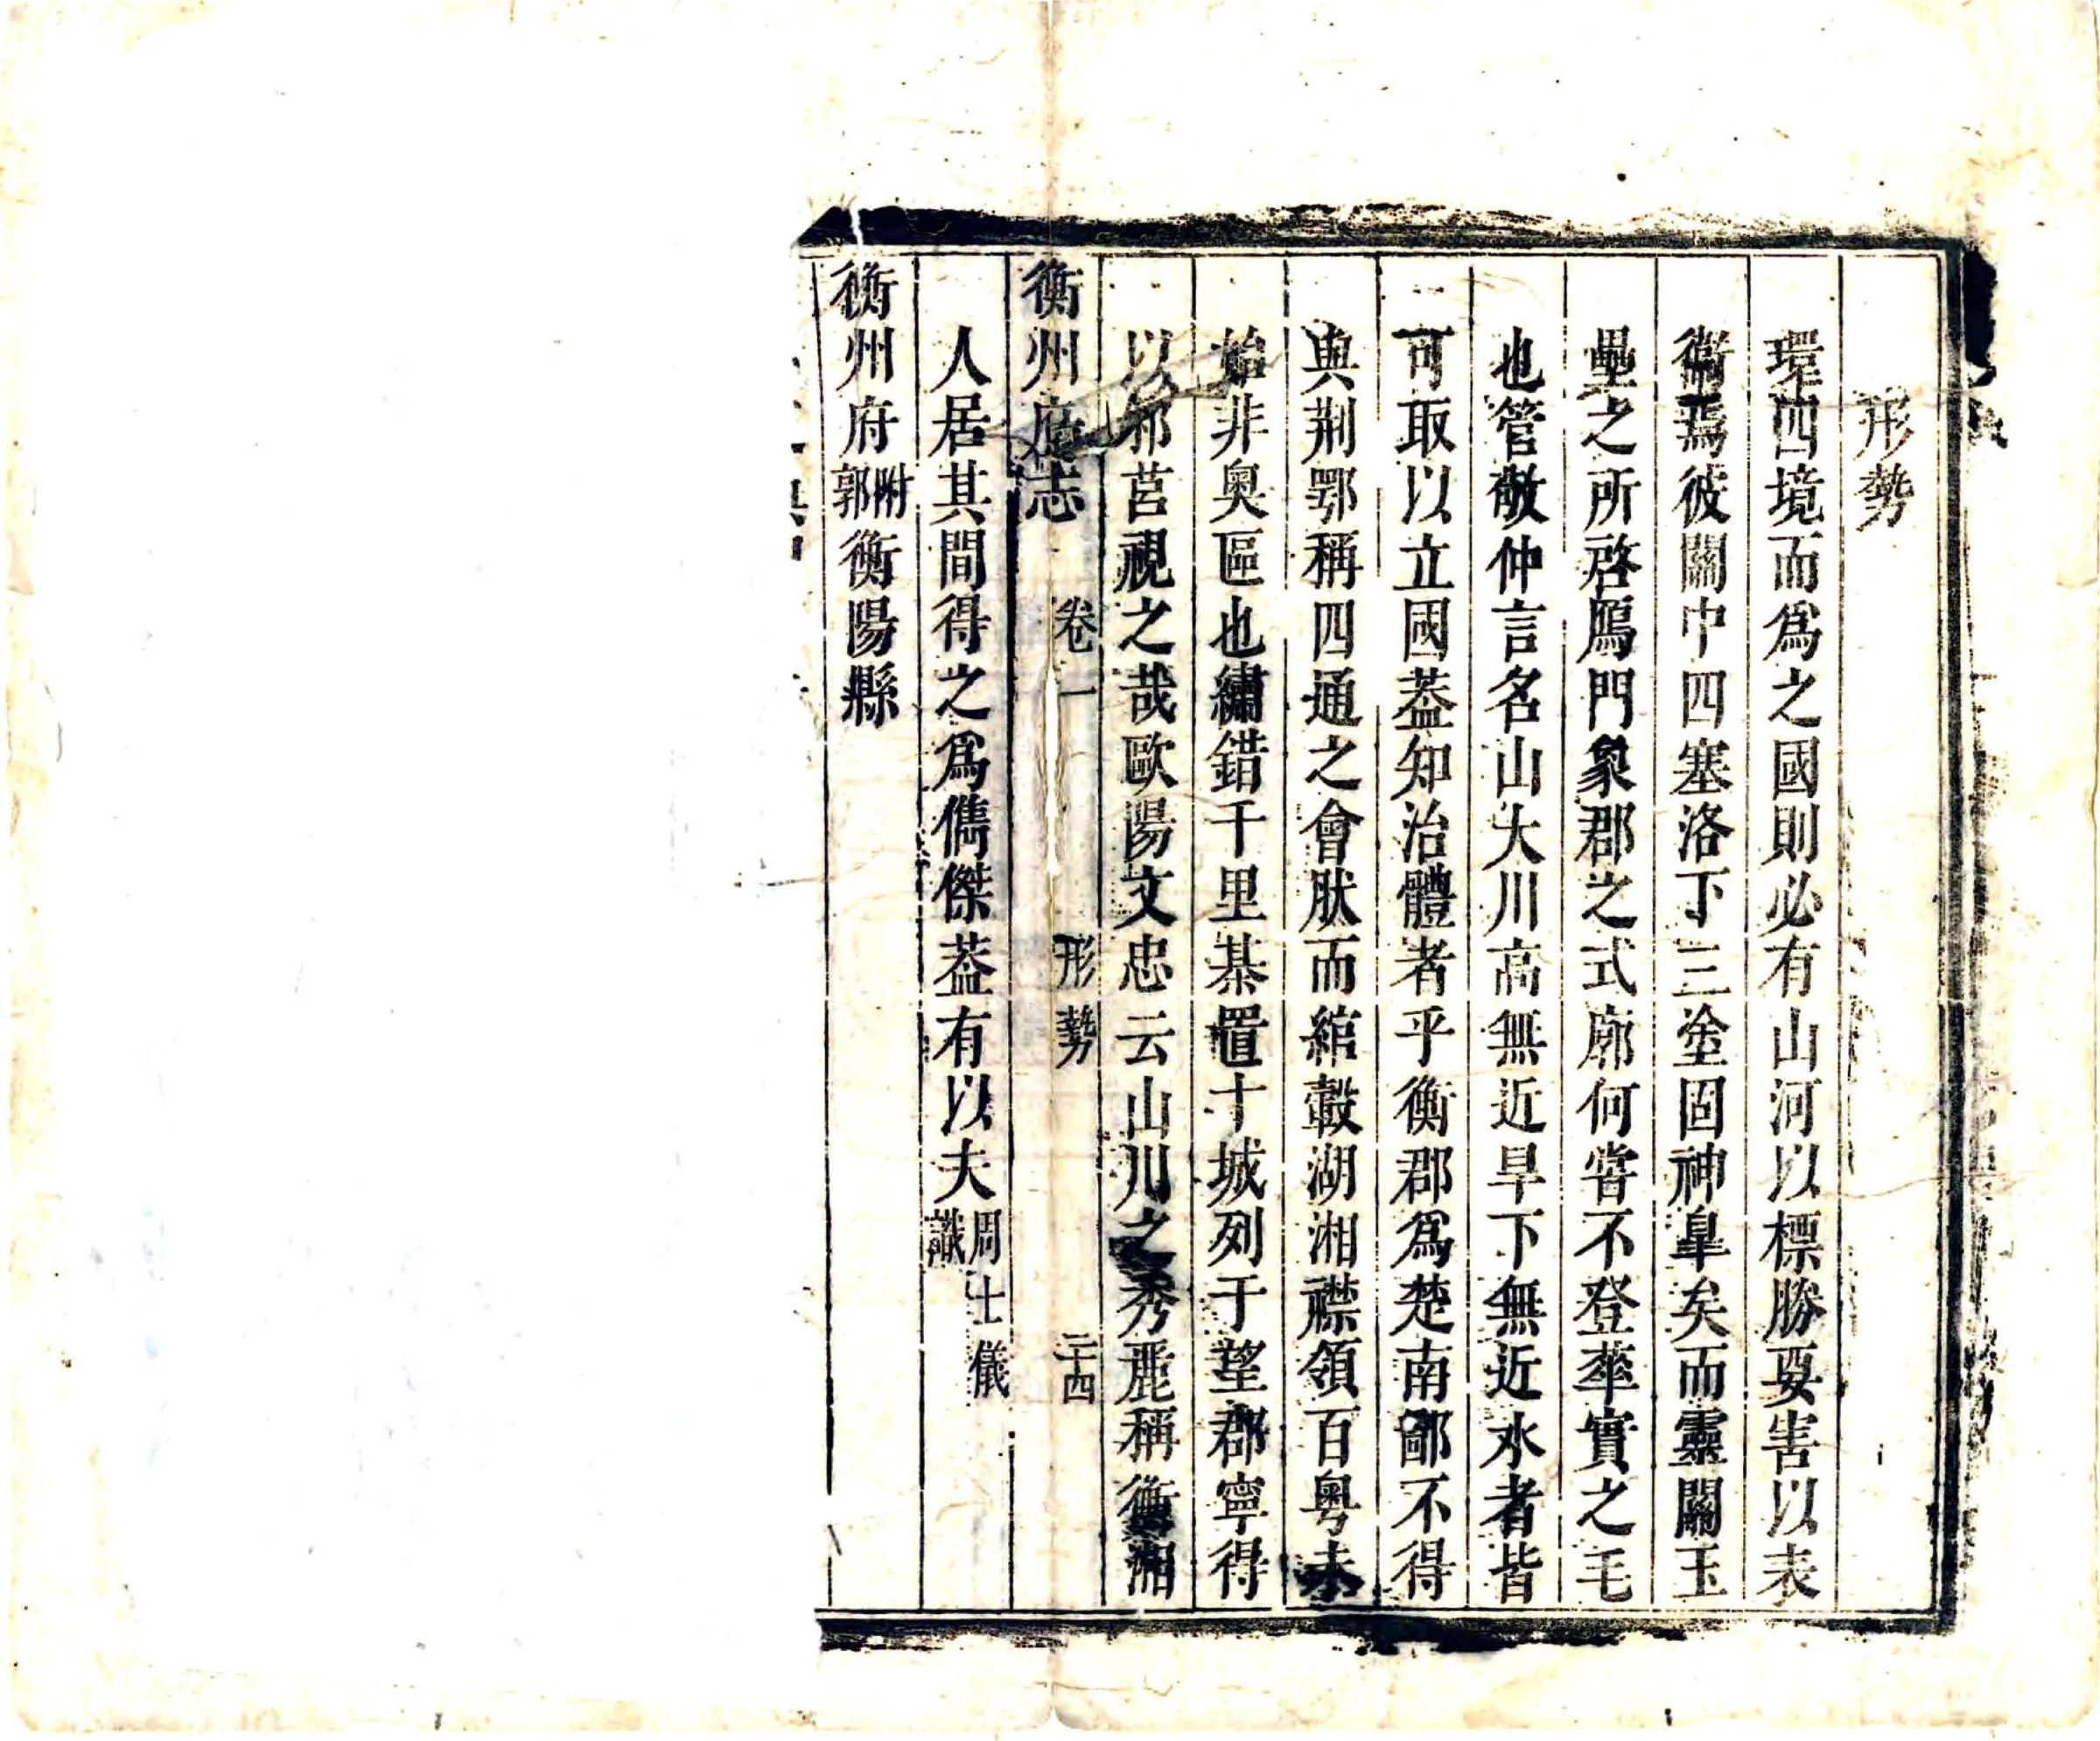 形勢
環四境而爲之國則必有山河以標勝要害以表
衞焉彼關中四塞洛下三塗固神臯矣而靈關玉
壘之所啓鴈門象郡之式廓何嘗不登革實之毛
也管敬仲言名山大川高無近旱下無近水者皆
可取以立國葢知治體者乎衡郡爲楚南鄙不得
與荆鄂稱四通之會肰而綰轂湖湘襟領百粤未
始非奥區也繡錯千里棊置十城列于望郡寧得
以邾莒視之哉歐陽文忠云山川之秀麗稱衡湘
衡州府志 卷一 形勢 二十四
人居其間得之爲儁傑葢有以夫周士儀識
衡州府附郭衡陽縣